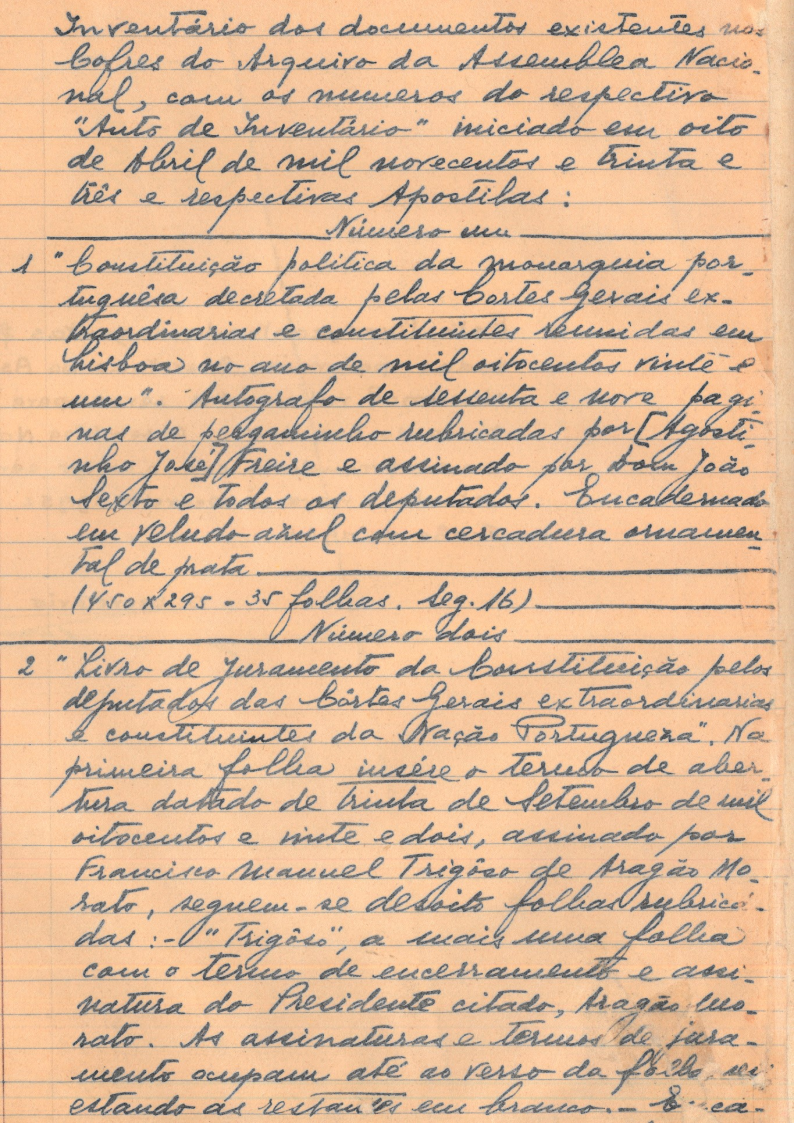 Inventário dos documentos existentes nos
Cofres do Arquivo da Assemblea Nacio-
nal, com os numeros do respectivo
"Auto de Inventário" iniciado em oito
de Abril de mil novecentos e trinta e
três e respectivas Apostilas:
Número um
1 "Constituição politica da monarquia por-
tuguêsa decretada pelas Cortes Gerais ex-
traordinarias e constituintes reunidas em
Lisboa no ano de mil oitocentos vinte e
um". Autografo de sessenta e nove pagi-
nas de pergaminho rubricadas por [Agosti-
nho José] Freire e assinado por Dom João
Sexto e todos os deputados. Encadernado
em veludo azul com cercadura ornamen-
tal de prata
(450 x 295 - 35 folhas. Seg. 16)
Número dois
2 "Livro de Juramento da Constituição pelos
deputados das Côrtes Gerais extraordinarias
e constituintes da Nação Portugueza". Na
primeira folha insére o termo de aber-
tura datado de trinta de Setembro de mil
oitocentos e vinte e dois, assinado por
Francisco Manuel Trigôso de Aragão Mo-
rato, seguem-se desoito folhas rubrica-
das:- "Trigôso", a mais uma folha
com o termo de encerramento e assi-
natura do Presidente citado, Aragão Mo-
rato. As assinaturas e termos de jura-
mento ocupam até ao verso da
estando as restantes em branco. - E ca-